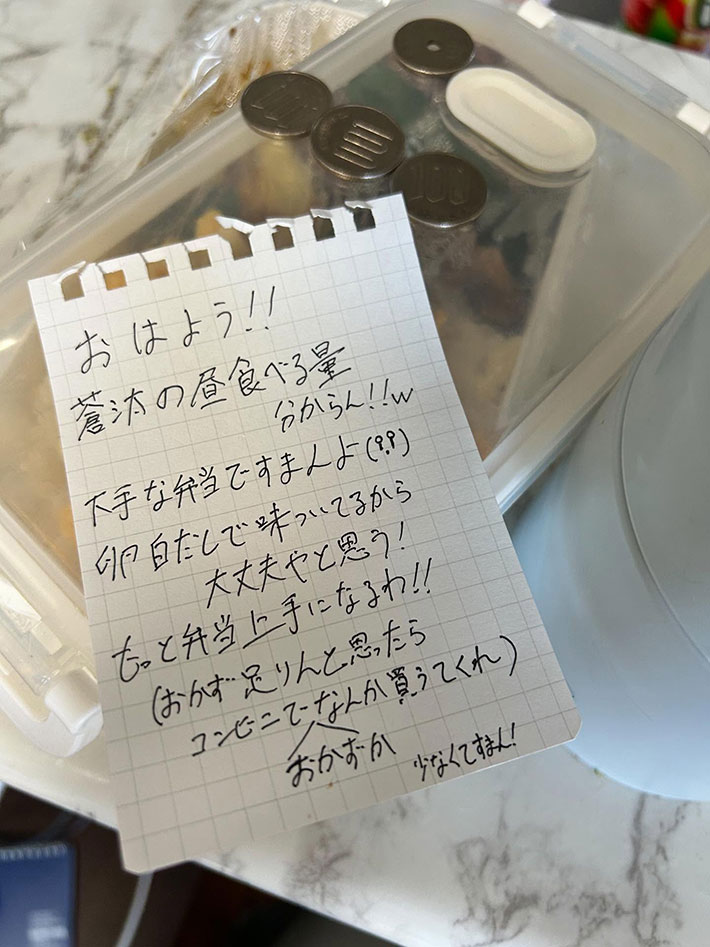 おはよう!!
蒼汰の昼食べる量
分からん!!w
下手な弁当ですまんよ(߹߹)
卵白だしで味ついてるから
大丈夫やと思う!
もっと弁当上手になるわ!!
(おかず足りんと思ったら
コンビニでなんか買うてくれ)
おかずか
少なくてすまん!
100
100
100